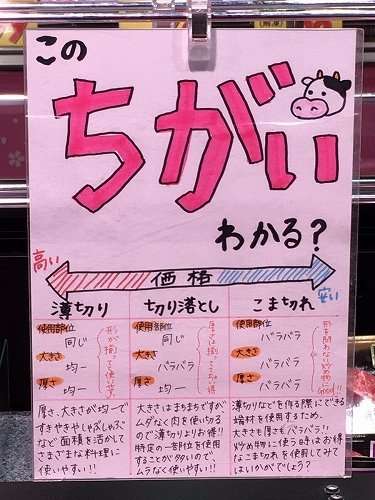 この
ちがい
わかる?
高い
価格
安い
薄切り
切り落とし
こま切れ
使用部位
同じ
大きさ
均一
厚さ
均一
使用部位
同じ
大きさ
バラバラ
厚さ
均一
使用部位
バラバラ
大きさ
バラバラ
厚さ
バラバラ
厚さ、大きさが均一で
すきやきやしゃぶしゃぶ
など面積を活かして
さまざまな料理に
使いやすい!!
大きさはまちまちですが
ムダなく肉を使い切る
ので薄切りよりお得!!
特定の一部位を使用
することが多いので、
ムラなく使いやすい!!
薄切りなどを作る際にできる
端材を使用するため、
大きさも厚さもバラバラ!!
炒め物に使う時はお得
なこま切れを使用してみて
はいかがでしょう?